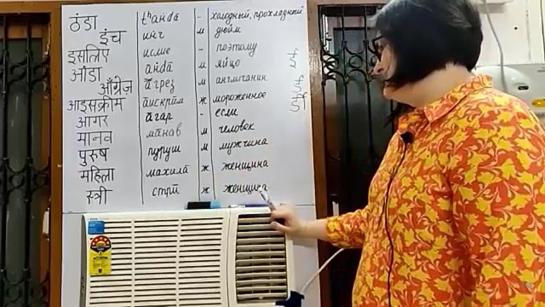 ठंडा tʰандā - холодный, прохладный
इंच инч м дюйм
इसलिए ислие - поэтому
अंडा āнdā м яйцо
अँग्रेज़ ãгрез м англичанин
आइसक्रीम āискрӣм ж мороженное
आगर āгар - если
मानव мāнав м человек
पुरुष пуруш м мужчина
महिला махилā ж женщина
स्त्री стрӣ ж женщина
ई
ई